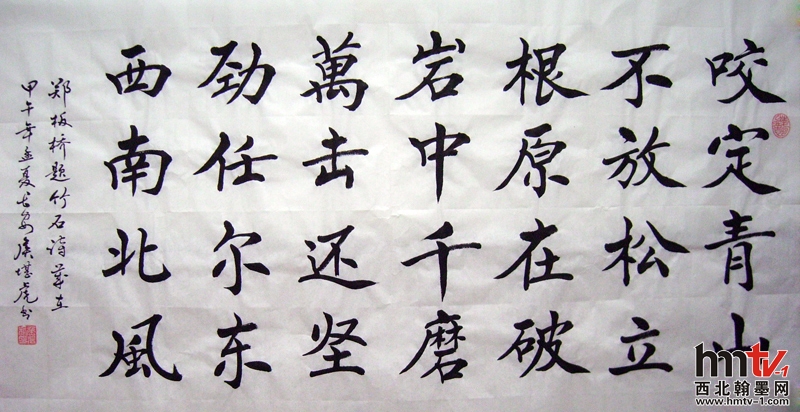 咬定青山
不放松立
根原在破
岩中千磨
萬击还坚
劲任尔东
西南北風
郑板桥题竹石诗岁在
甲午年孟夏长安侯虎书
hmtv-1
西北翰墨网
www.hmtv-1.com